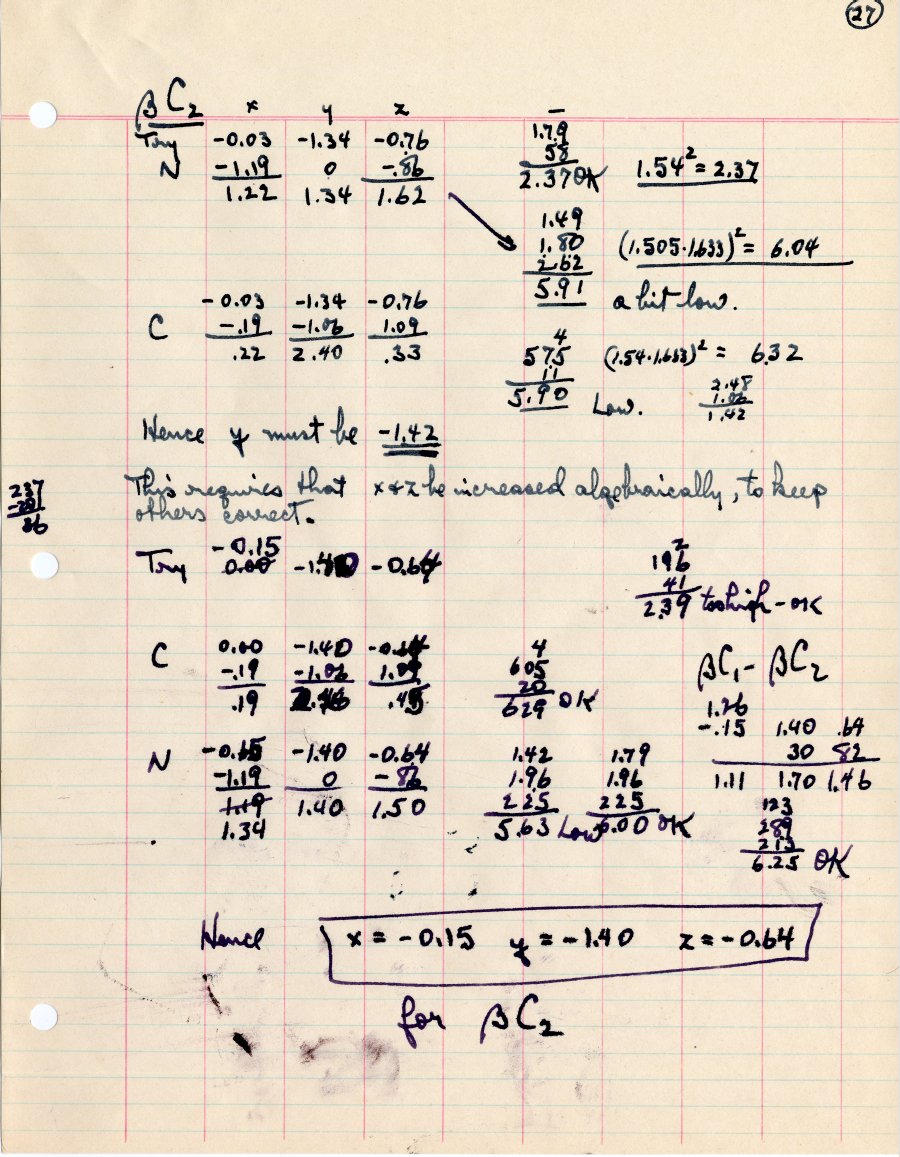 27
βC₂ x y z
Try -0.03 -1.34 -0.76 1.79
N -1.19 0 -.86 58
1.22 1.34 1.62 2.37 OK 1.54² = 2.37
1.49
1.80 (1.505·1.633)² = 6.04
2.62
5.91 a bit low.
-0.03 -1.34 -0.76
C -.19 -1.06 1.09 4
.22 2.40 .33 575 (1.54·1.633)² = 6.32
11
5.90 Low.
2.48
1.06
1.42
Hence y must be -1.42
This requires that x & z be increased algebraically, to keep
others correct.
237
36
-0.15
Try 0.00 -0.64
2
196
41
2.39 too high - OK
C 0.00 -1.40 4
-.19 -1.06 1.09 605
.19 .45 20
629 OK
βC₁ - βC₂
1.26
-.15 1.40 .64
30 82
1.11 1.70 1.46
N -0.15 -1.40 -0.64 1.42 1.79
-1.19 0 -.86 1.96 1.96
1.19 1.40 1.50 225 225
1.34 5.63 Low 6.00 OK
123
289
213
6.25 OK
Hence x = -0.15 y = -1.40 z = -0.64
for βC₂